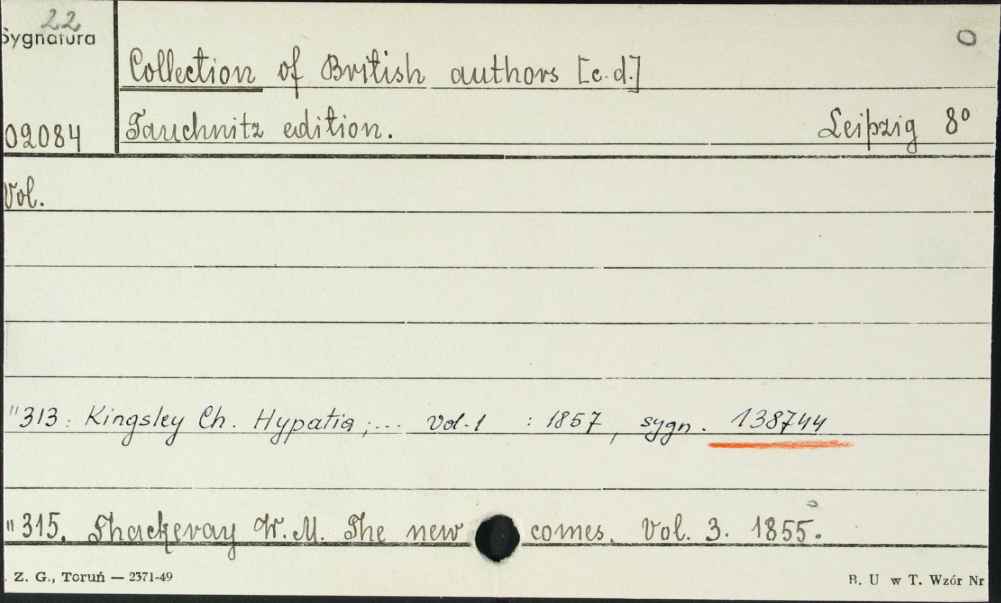 22
Sygnatura
O
Collection of British authors [c.d.]
02084
Tauchnitz edition. Leipzig 8°
Vol.
"313: Kingsley Ch. Hypatia;... vol.1 : 1857, sygn. 138744
"315. Thackeray W. M. The new comes. Vol. 3. 1855.
Z. G., Toruń — 2371-49
B. U w T. Wzór Nr